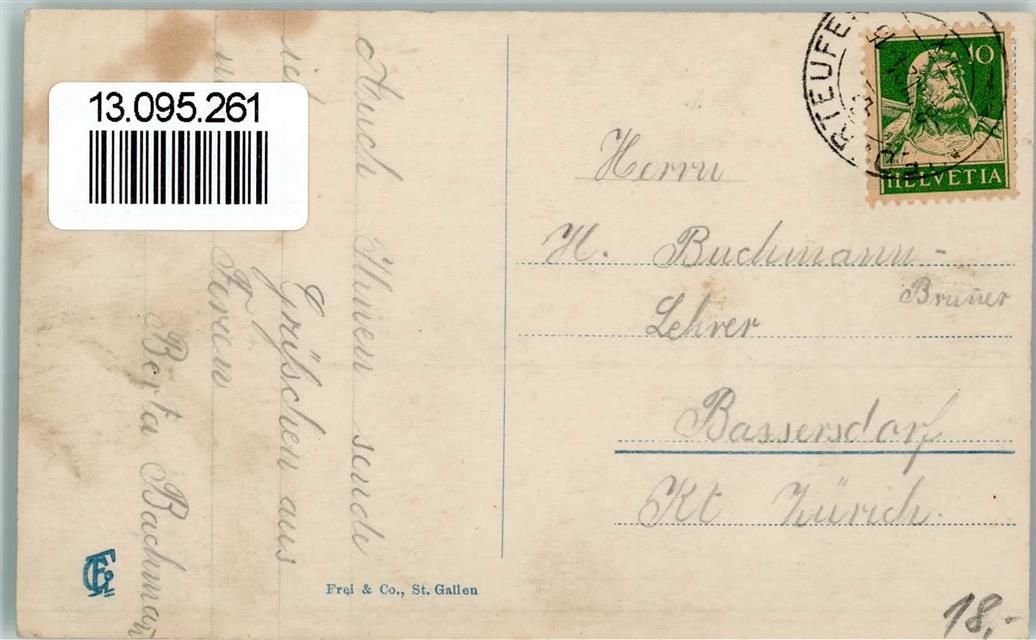 13.095.261
Auch Ihnen sende
Grüsschen aus
Ferien
Berta Bachman
Frei & Co., St. Gallen
TEUFE
10
HELVETIA
Herrn
H. Buchmann-
Bruner
Lehrer
Bassersdorf
Kt Zürich.
18,-